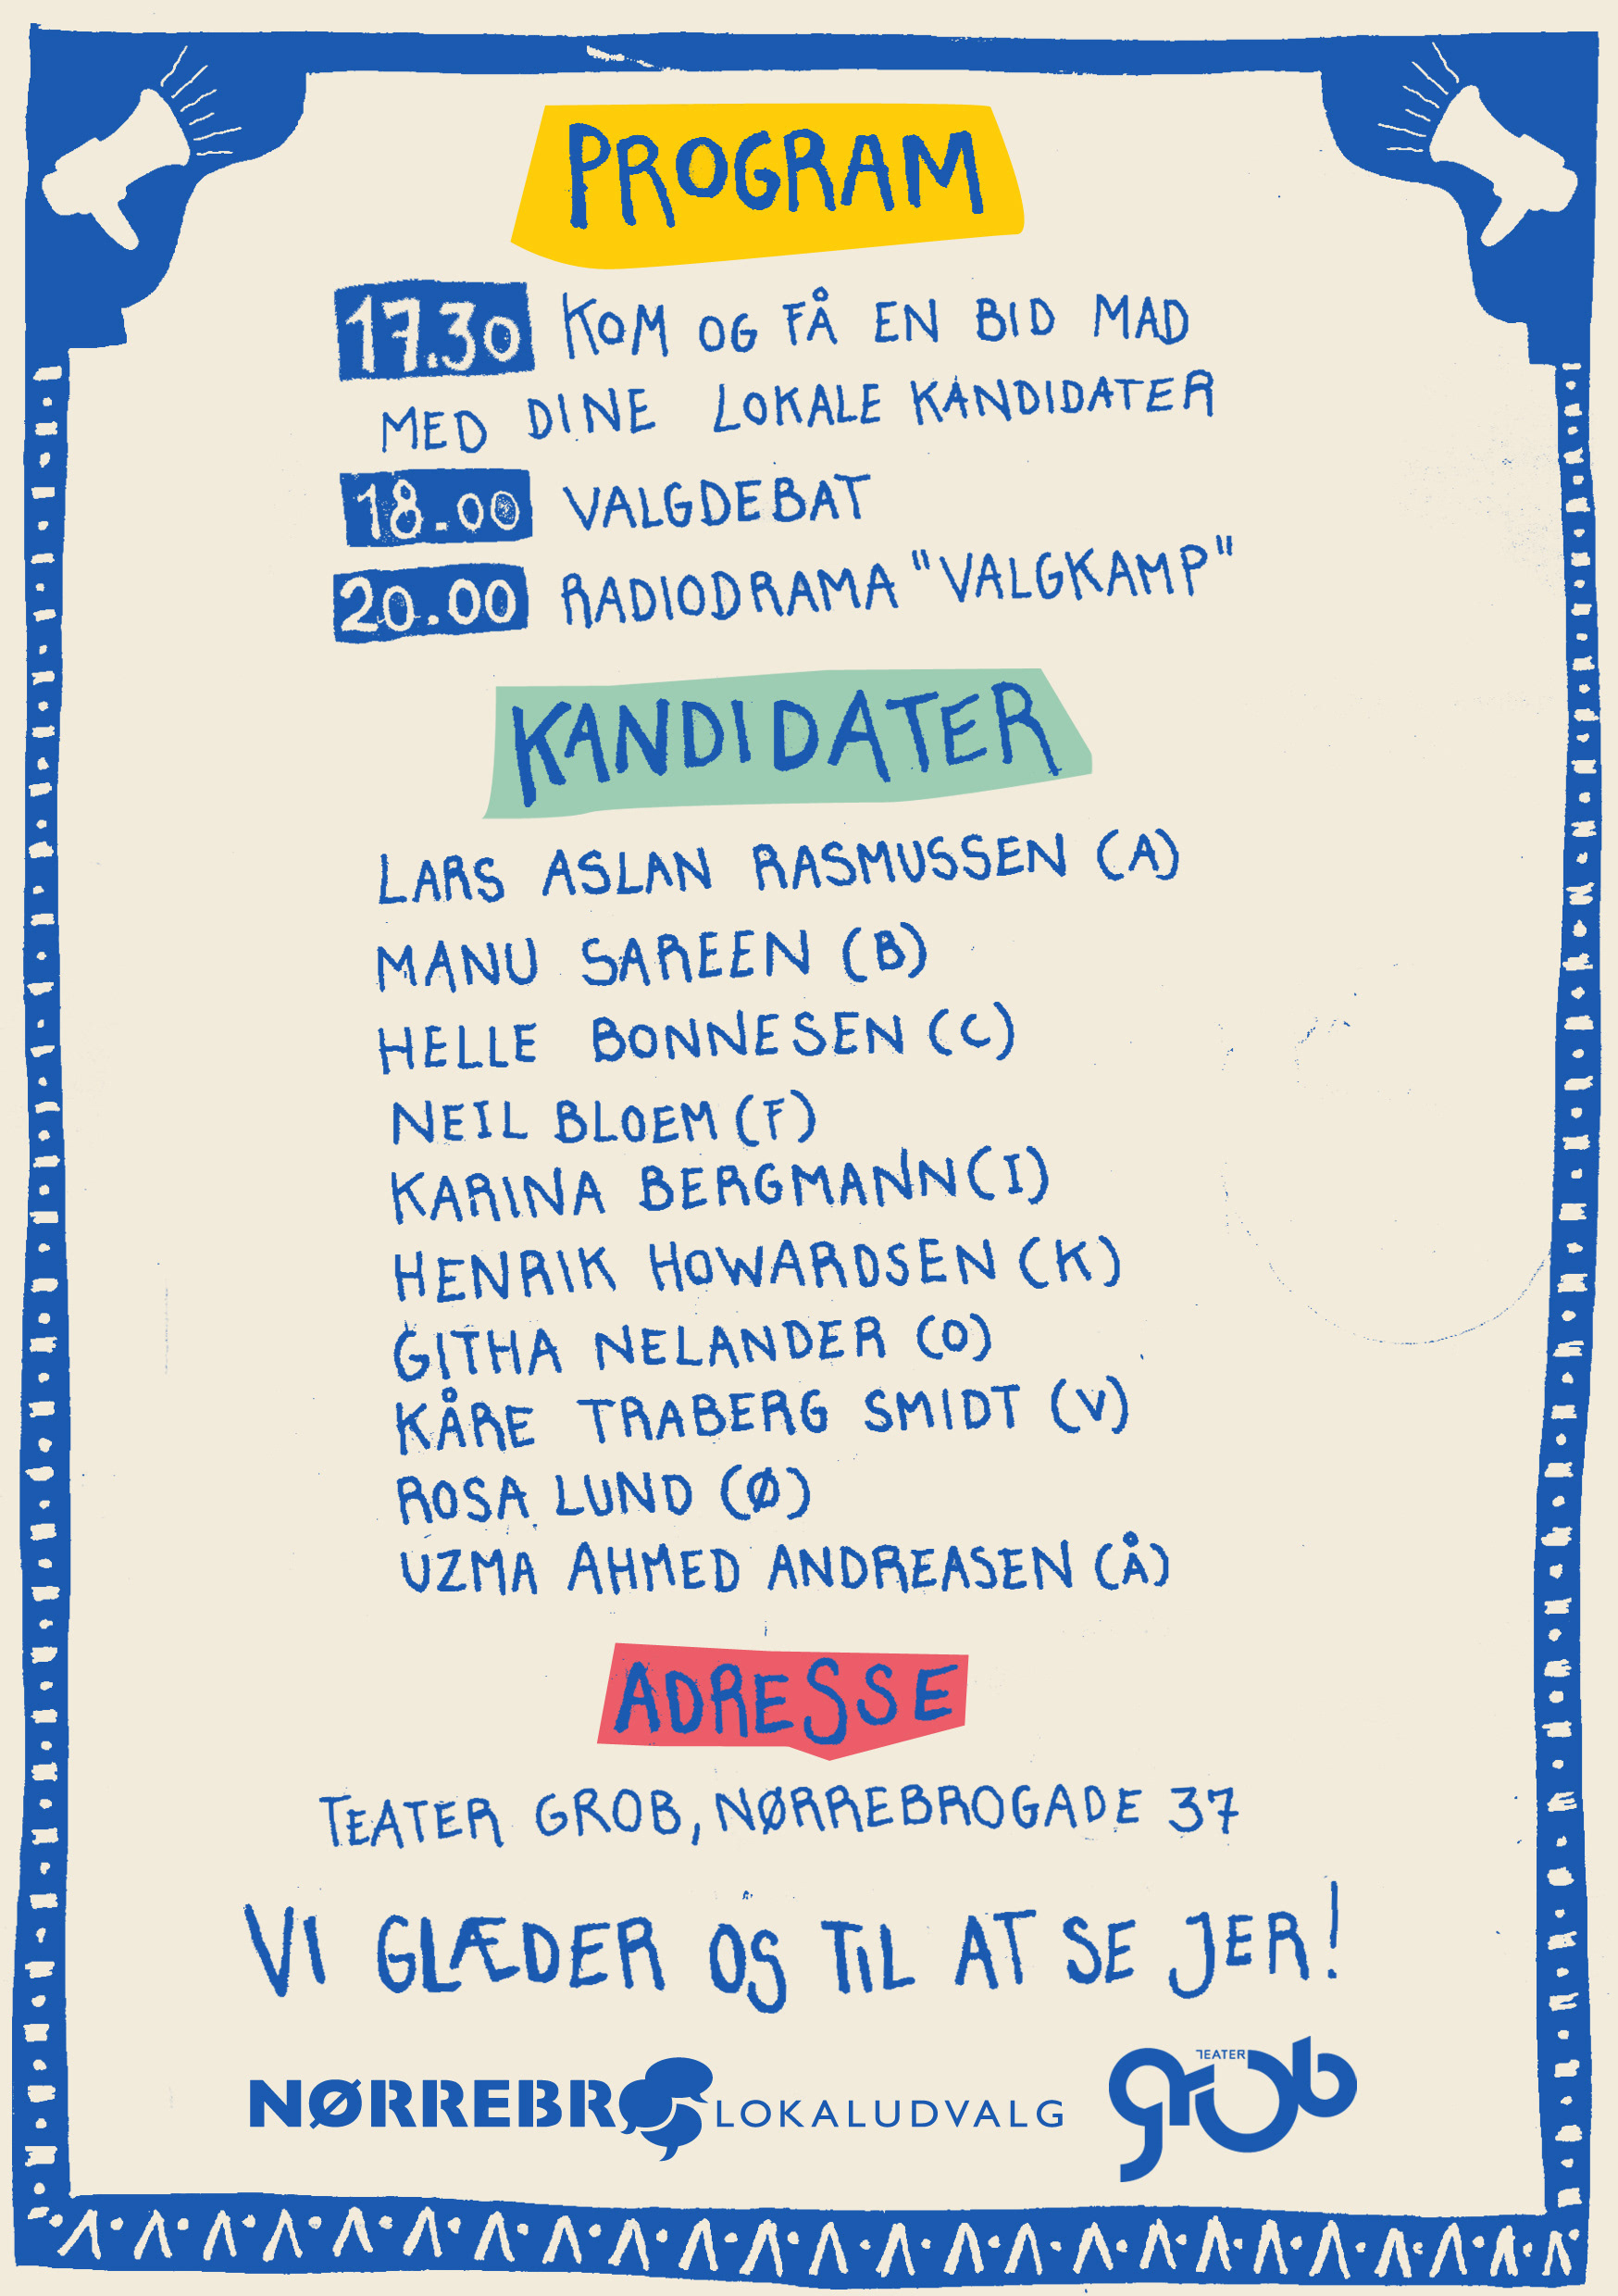 PROGRAM
17.30 KOM OG FÅ EN BID MAD
MED DINE LOKALE KANDIDATER
18.00 VALGDEBAT
20.00 RADIODRAMA "VALGKAMP"
KANDIDATER
LARS ASLAN RASMUSSEN (A)
MANU SAREEN (B)
HELLE BONNESEN (C)
NEIL BLOEM (F)
KARINA BERGMANN (I)
HENRIK HOWARDSEN (K)
GITHA NELANDER (O)
KÅRE TRABERG SMIDT (V)
ROSA LUND (Ø)
UZMA AHMED ANDREASEN (Å)
ADRESSE
TEATER GROB, NØRREBROGADE 37
VI GLÆDER OS TIL AT SE JER!
NØRREBRO LOKALUDVALG
TEATER
grob